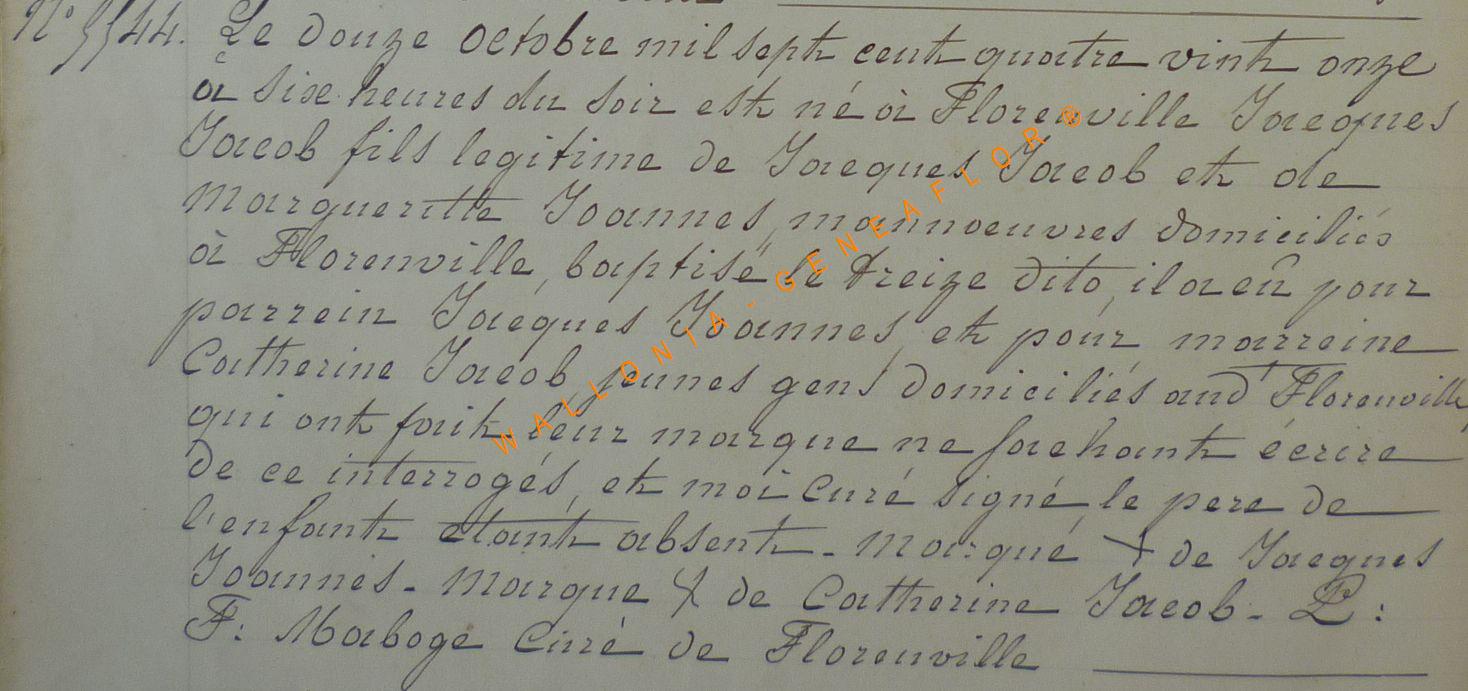 N° 5544. Le douze octobre mil sept cent quatre vint onze
à six heures du soir est né à Florenville Jacques
Jacob fils legitime de Jacques Jacob et de
Margueritte Joannes, mannoeuvres domiciliés
à Florenville, baptisé le treize dito, il a eû pour
parrein Jacques Joannes, et pour marreine
Catherine Jacob jeunes gens domiciliés aud't Florenville,
qui ont fait leur marque ne sachant écrire
de ce interrogés, et moi curé signé, le pere de
l'enfant etant absent. Marque + de Jacques
Joannes. Marque + de Catherine Jacob. P:
F: Maboge Curé de Florenville
WALLONIA-GENEAFLOR ®